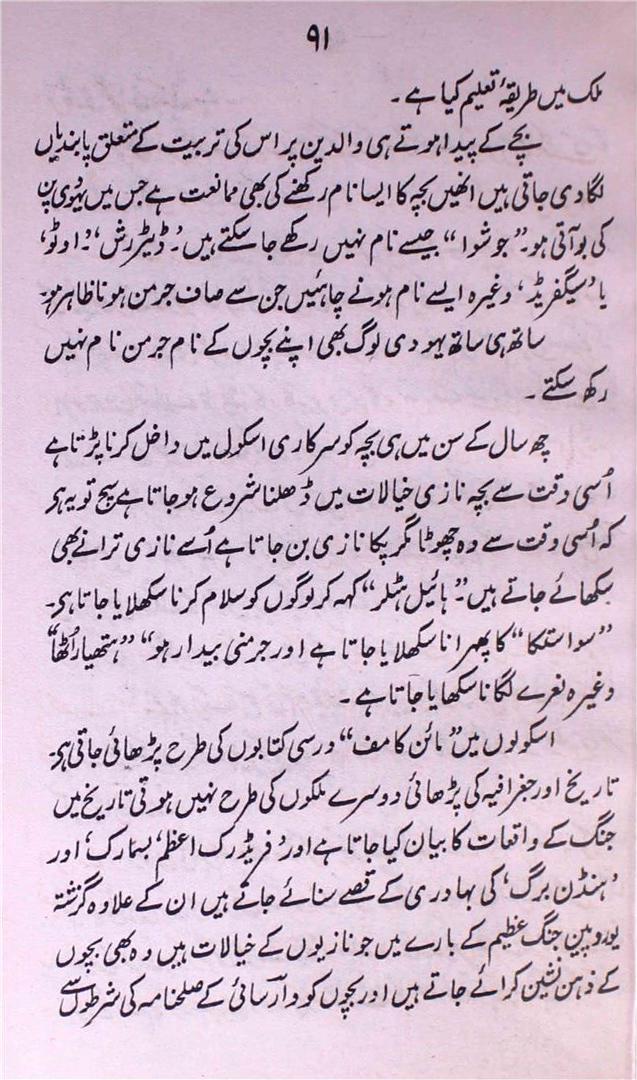 ۹۱
ملک میں طریقۂ تعلیم کیا ہے۔
بچے کے پیدا ہوتے ہی والدین پر اس کی تربیت کے متعلق پابندیاں
لگا دی جاتی ہیں انھیں بچہ کا ایسا نام رکھنے کی بھی ممانعت ہے جس میں یہودی پن
کی بو آتی ہو۔ ”جوشوا“ جیسے نام نہیں رکھے جا سکتے ہیں۔ ’ڈیٹررش‘، ’اوٹو‘،
یا ’سیگفریڈ‘، وغیرہ ایسے نام ہونے چاہئیں جن سے صاف جرمن ہونا ظاہر ہو۔
ساتھ ہی ساتھ یہودی لوگ بھی اپنے بچوں کے نام جرمن نام نہیں
رکھ سکتے۔
چھ سال کے سن میں ہی بچہ کو سرکاری اسکول میں داخل کرنا پڑتا ہے
اُسی وقت سے بچہ نازی خیالات میں ڈھلنا شروع ہو جاتا ہے سچ تو یہ ہے
کہ اُسی وقت سے وہ چھوٹا مگر پکا نازی بن جاتا ہے اُسے نازی ترانے بھی
سکھائے جاتے ہیں۔ ”ہائیل ہٹلر“ کہہ کر لوگوں کو سلام کرنا سکھلایا جاتا ہے۔
”سواستکا“ کا پھہرانا سکھلایا جاتا ہے اور جرمنی بیدار ہو“ ”ہتھیار اُٹھا“
وغیرہ نعرے لگانا سکھایا جاتا ہے۔
اسکولوں میں ”مائن کامف“ درسی کتابوں کی طرح پڑھائی جاتی ہے۔
تاریخ اور جغرافیہ کی پڑھائی دوسرے ملکوں کی طرح نہیں ہوتی تاریخ میں
جنگ کے واقعات کا بیان کیا جاتا ہے اور ’فریڈرک اعظم‘، بسمارک‘، اور
’ہنڈن برگ‘، کی بہادری کے قصے سنائے جاتے ہیں ان کے علاوہ گزشتہ
یوروپین جنگ عظیم کے بارے میں جو نازیوں کے خیالات ہیں وہ بھی بچوں
کے ذہن نشین کرائے جاتے ہیں اور بچوں کو وارسائی کے صلحنامہ کی شرطوں سے